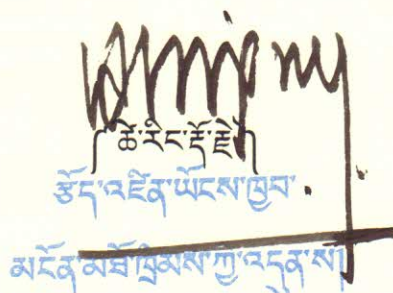 (ཚེ་རིང་རྡོ་རྗེ)
རྩོད་འཛིན་ཡོངས་ཁྱབ་
མངོན་མཐོ་ཁྲིམས་ཀྱི་འདུན་ས།